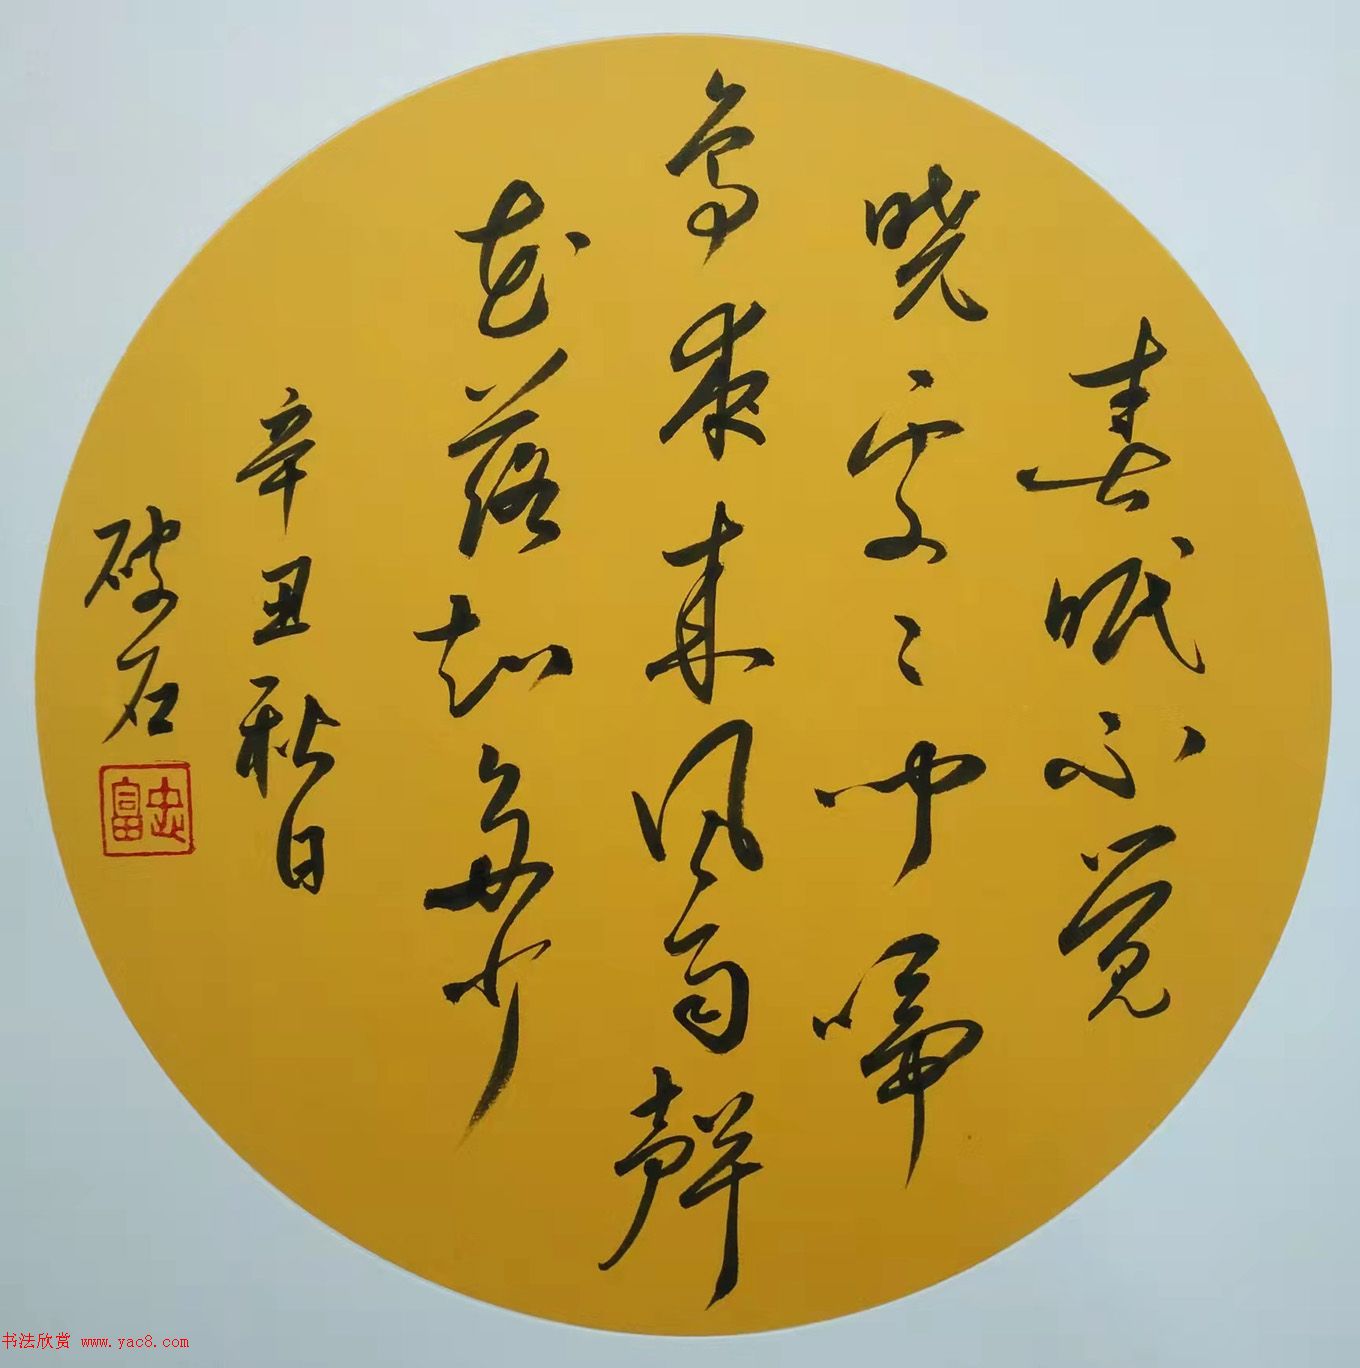 春眠不觉
晓处处闻啼
鸟夜来风雨聲
花落知多少
辛丑秋日
破石
忠富
书法欣赏 www.yac8.com